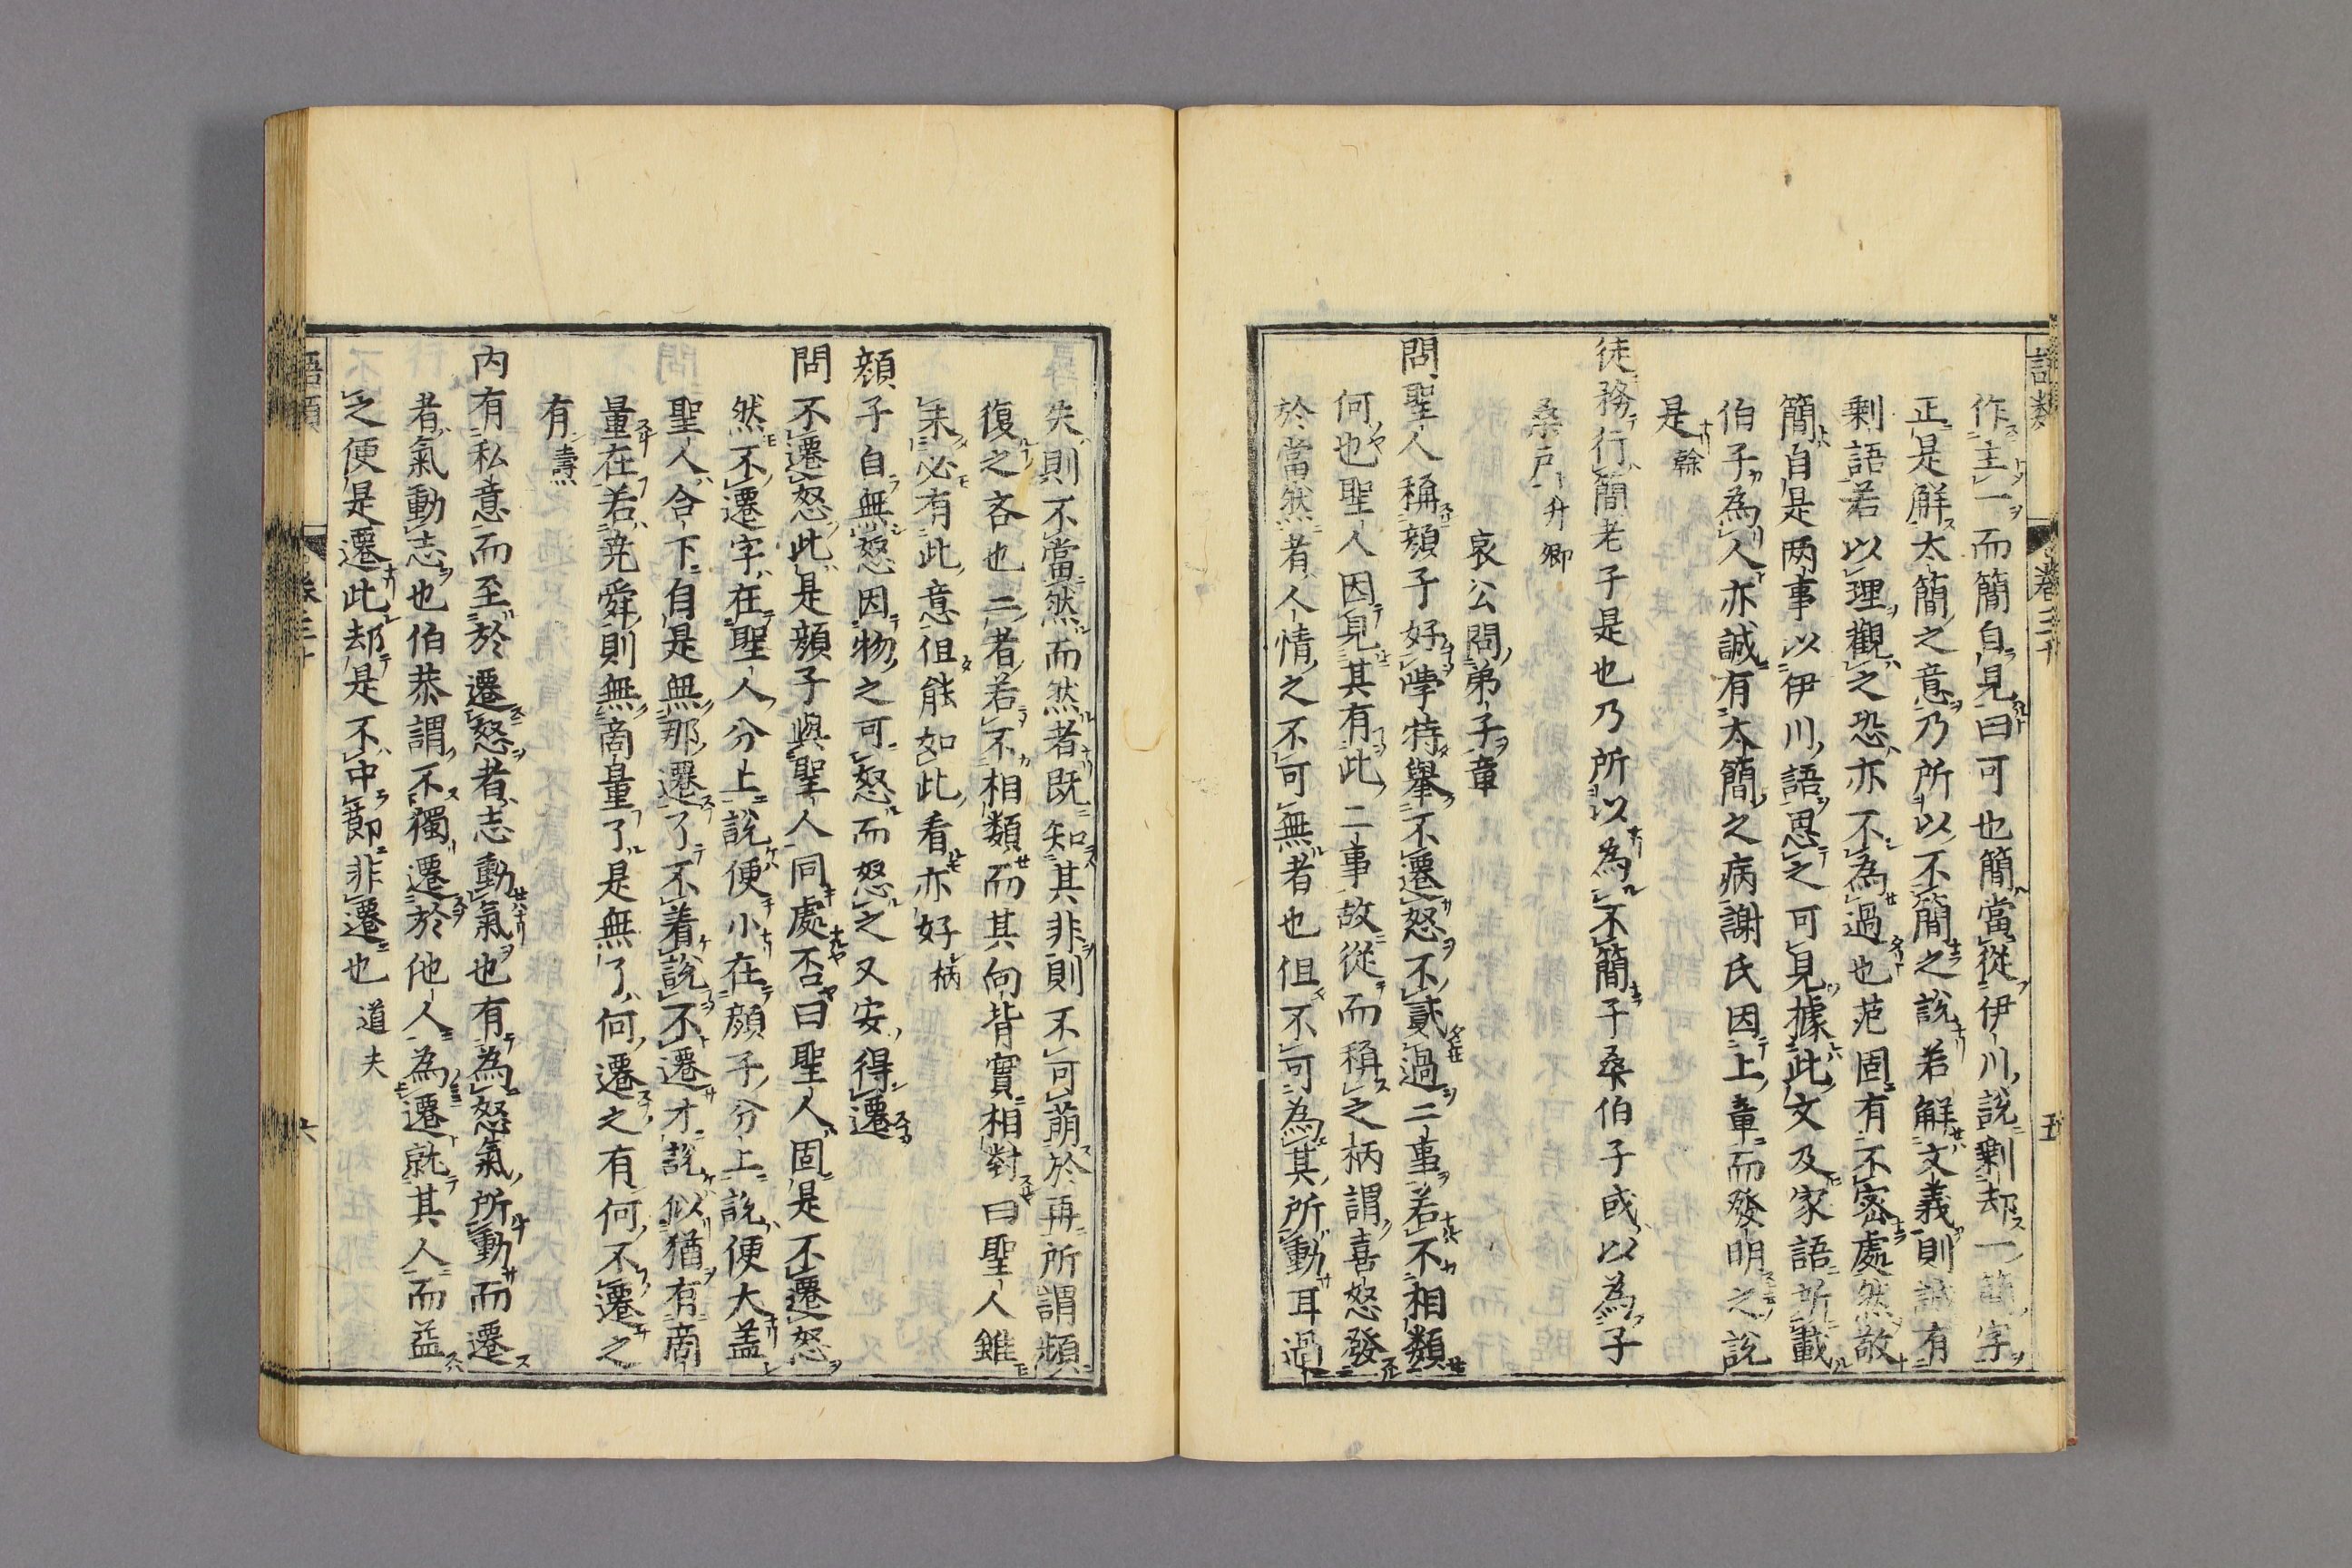 語類 卷三十 五
作主一而簡自見曰可也簡當從伊川說剩却一簡字
正是解太簡之意乃所以不簡之說若解文義則誠有
剩語若以理觀之恐亦不為過也范固有不密處然敬
簡自是两事以伊川語思之可見據此文及家語所載
伯子為人亦誠有太簡之病謝氏因上章而發明之說
是榦
徒務行簡老子是也乃所以為不簡子桑伯子或以為子
桑戶升卿
哀公問弟子章
問聖人稱顔子好學特舉不遷怒不貳過二事若不相類
何也聖人因見其有此二事故從而稱之柄謂喜怒發
於當然者人情之不可無者也但不可為其所動耳過
失則不當然而然者既知其非則不可萌於再所謂頻
復之吝也二者若不相類而其向背實相對曰聖人雖
未必有此意但能如此看亦好柄
顔子自無怒因物之可怒而怒之又安得遷
問不遷怒此是顔子與聖人同處否曰聖人固是不遷怒
然不遷字在聖人分上說便小在顔子分上說便大盖
聖人合下自是無那遷了不着說不遷才說似猶有啇
量在若堯舜則無啇量了是無了何遷之有何不遷之
有燾
内有私意而至於遷怒者志動氣也有為怒氣所動而遷
者氣動志也伯恭謂不獨遷於他人為遷就其人而益
之便是遷此却是不中節非遷也道夫
語類 卷三十 六